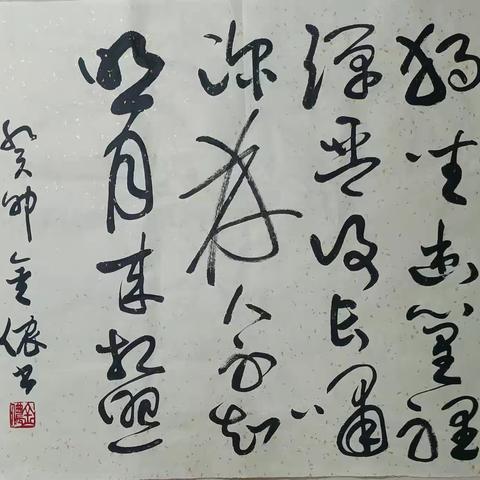 獨坐幽篁裡
彈琴復長嘯
深林人不知
明月来相照
癸卯金儂书
金儂